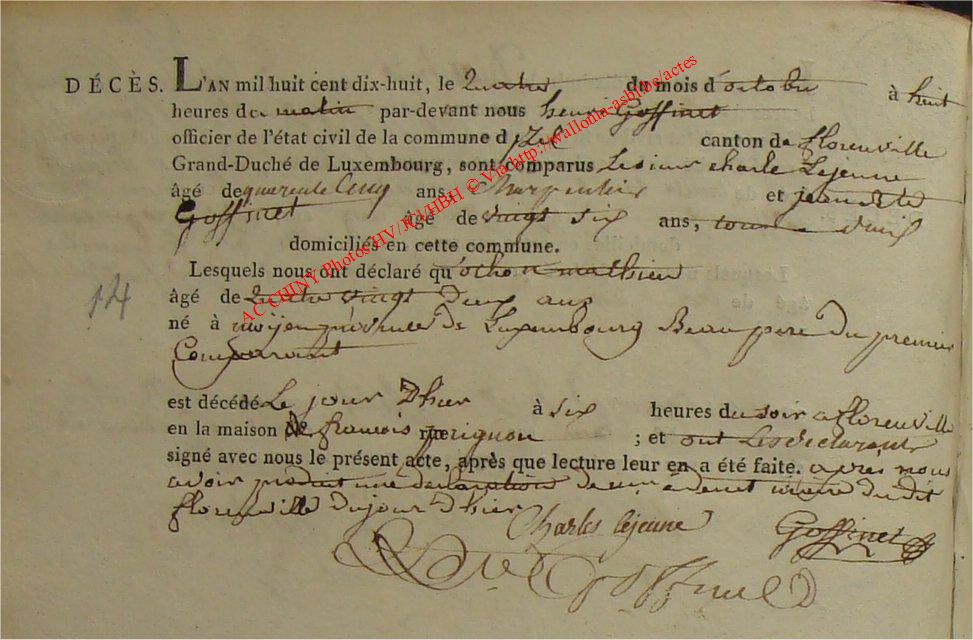 DÉCÈS. L'AN mil huit cent dix-huit, le Quatre du mois d'octobre à huit
heures du matin par-devant nous henri Goffinet
officier de l'état civil de la commune d'Izel canton de florenville
Grand-Duché de Luxembourg, sont comparus Le sieur charle Lejeune
âgé de quarente Cinq ans Charpentier et jean
Goffinet âgé de vingt six ans,
domiciliés en cette commune.
Lesquels nous ont déclaré qu' mathieu
14
âgé de Quatre vingt Deux ans
né à moijen de Luxembourg Beau pere Du premier
Comparant
est décédé Le jour D'hier à six heures du soir a florenville
en la maison de francois pierre perignon ; et ont Les declarants
signé avec nous le présent acte, après que lecture leur en a été faite. apres nous
avoir produit une declaration de dudit
florenville Du jour D'hier
Charles lejeune Goffinet
Goffinet
AC CHINY Photos HV/JCJ/HBH © Via http://wallonia-asbl.be/actes